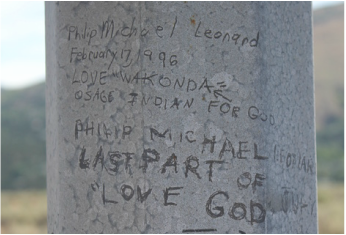 Philip Michael Leonard
February 17, 1996
LOVE WAKONDA
OSAGE INDIAN FOR GOD
PHILIP MICHAEL
LAST PART OF
"LOVE GOD